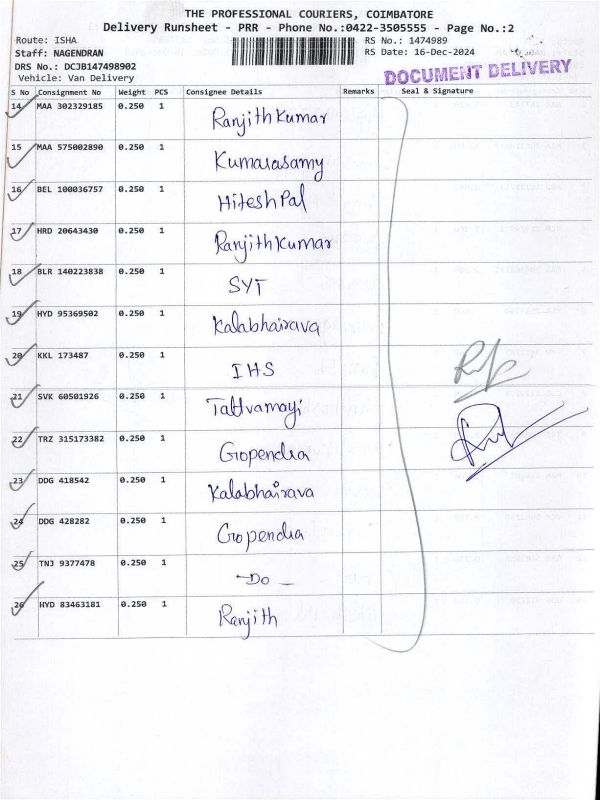 THE PROFESSIONAL COURIERS, COIMBATORE
Delivery Runsheet - PRR - Phone No.:0422-3505555 - Page No.:2
Route: ISHA RS No.: 1474989
Staff: NAGENDRAN RS Date: 16-Dec-2024
DRS No.: DCJB147498902
Vehicle: Van Delivery
DOCUMENT DELIVERY
S No Consignment No Weight PCS Consignee Details Remarks Seal & Signature
14 MAA 302329185 0.250 1 Ranjith Kumar
15 MAA 575002890 0.250 1 Kumarasamy
16 BEL 100036757 0.250 1 Hitesh Pal
17 HRD 20643430 0.250 1 Ranjith Kumar
18 BLR 140223838 0.250 1 SYT
19 HYD 95369502 0.250 1 Kalabhairava
20 KKL 173487 0.250 1 IHS
21 SVK 60501926 0.250 1 Tattvamayi
22 TRZ 315173382 0.250 1 Gopendra
23 DDG 418542 0.250 1 Kalabhairava
24 DDG 428282 0.250 1 Gopendra
25 TNJ 9377478 0.250 1 -Do-
26 HYD 83463181 0.250 1 Ranjith